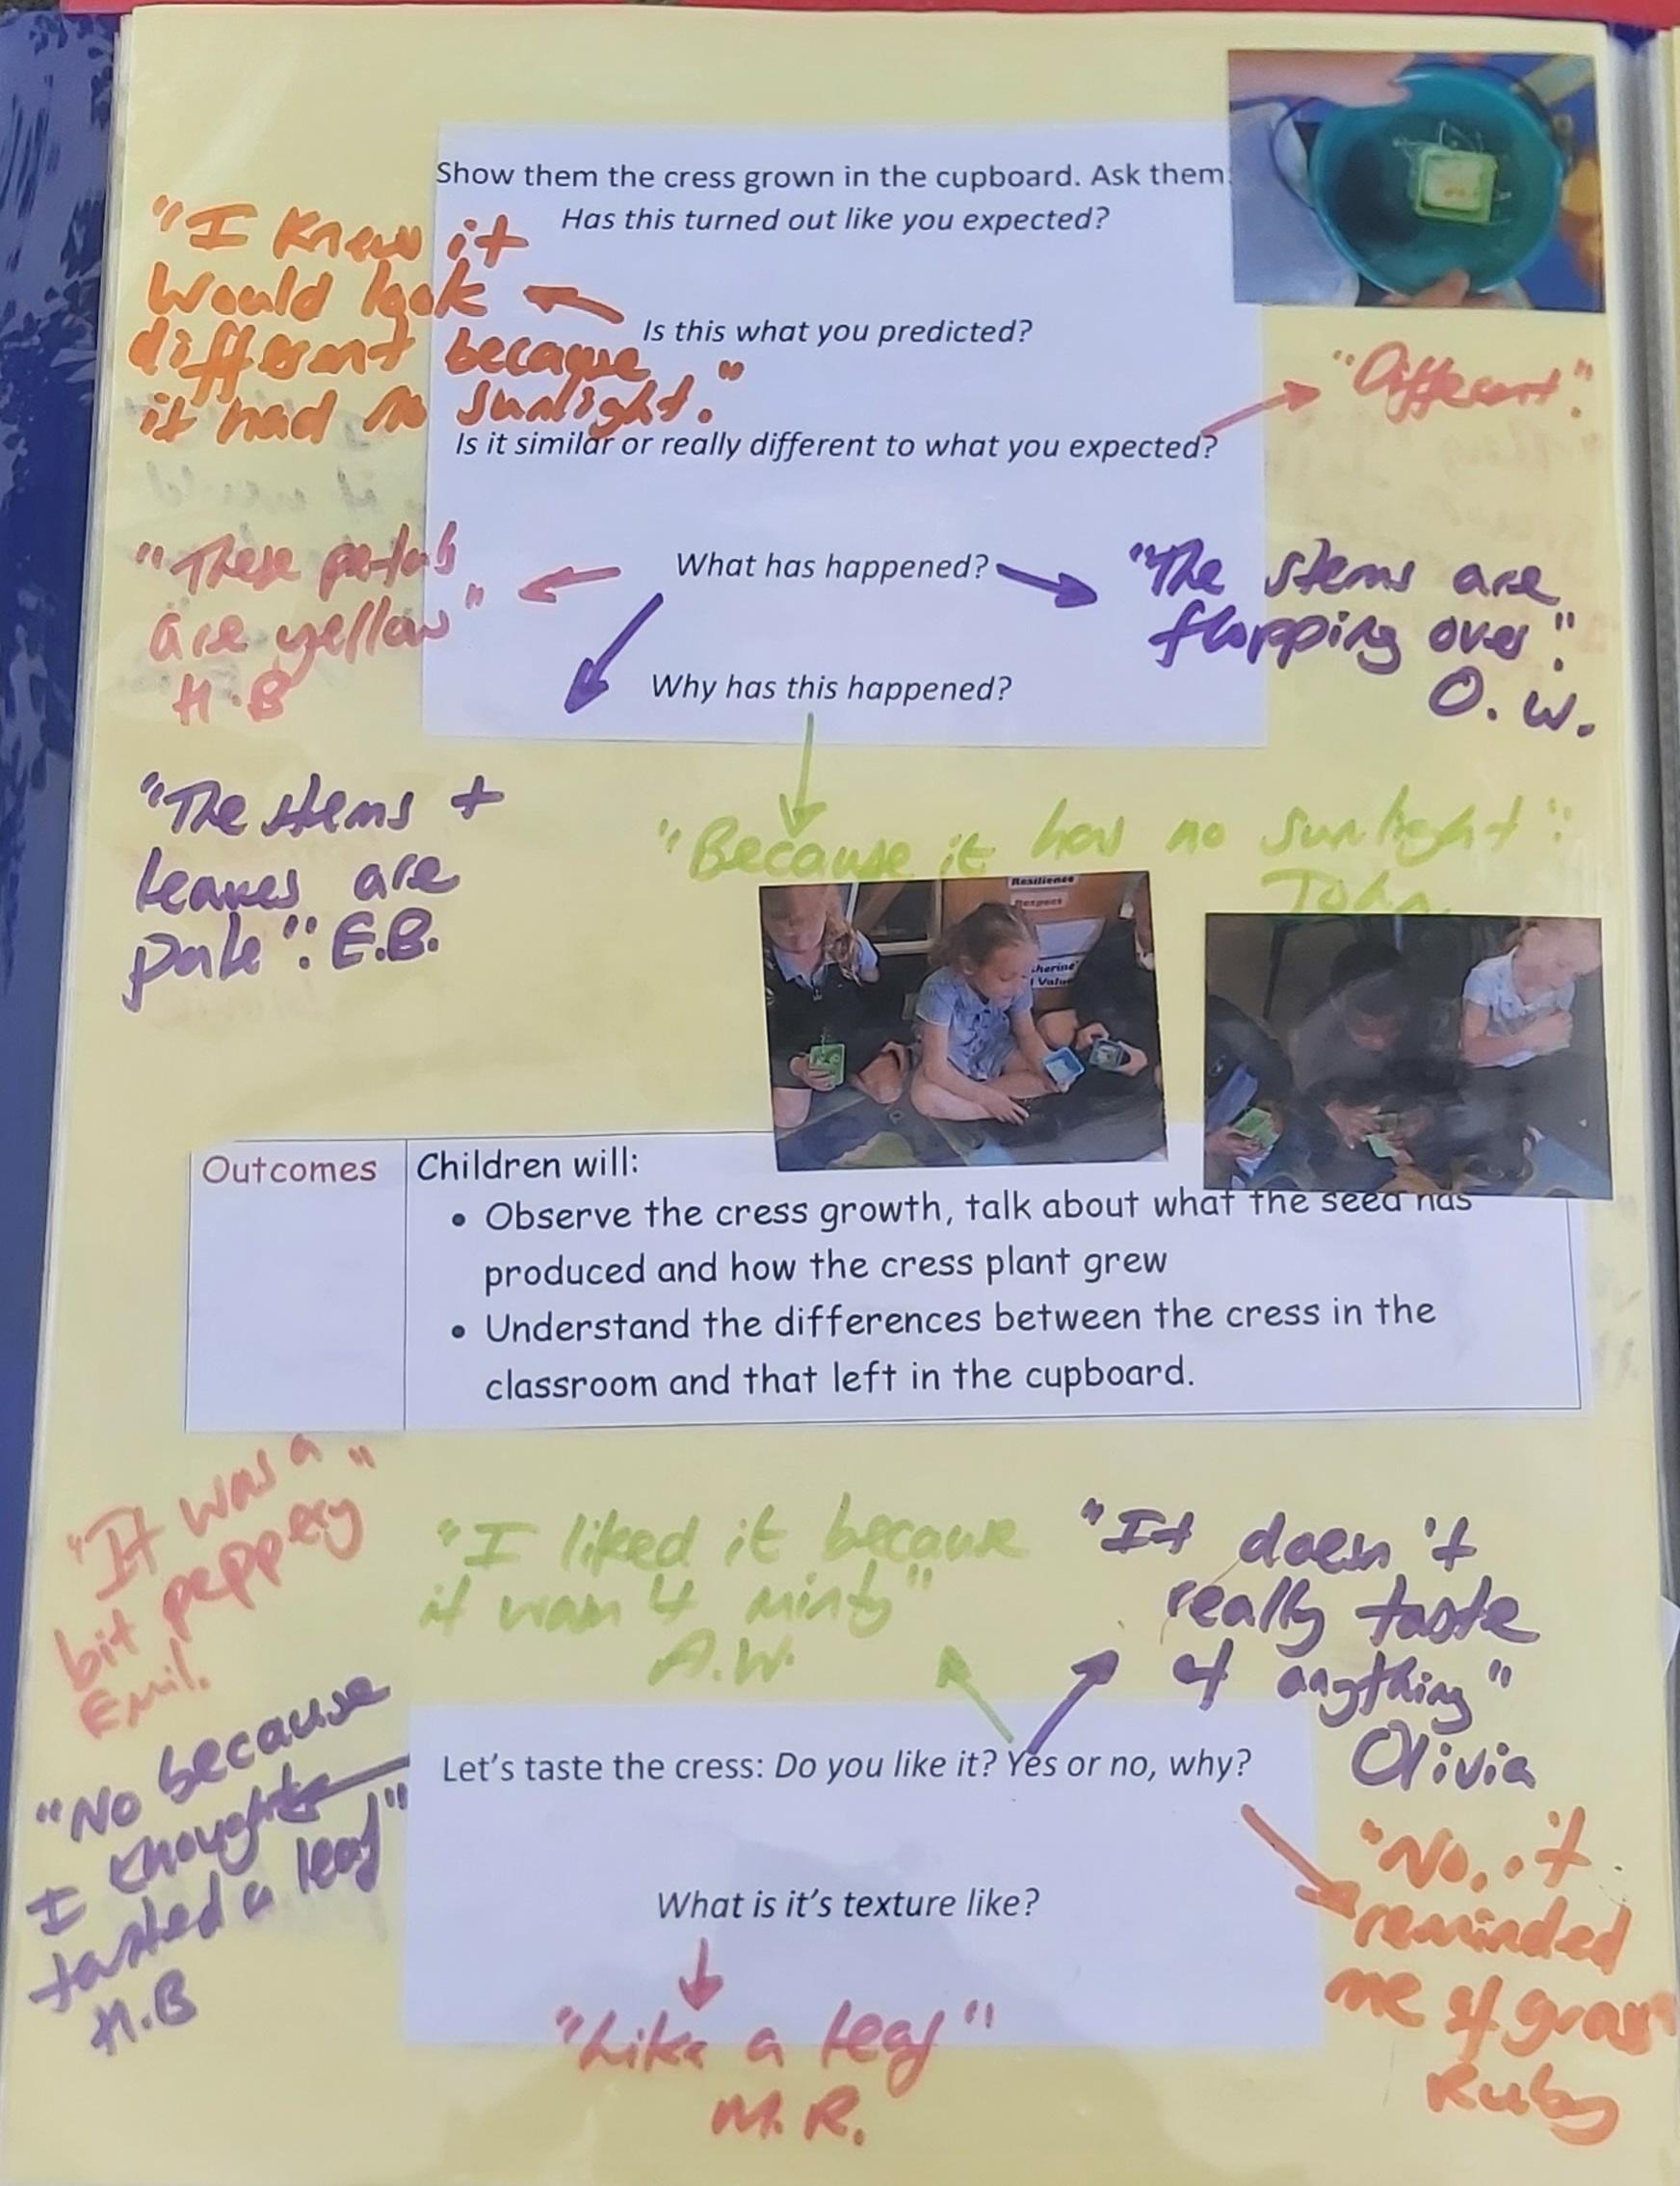 Show them the cress grown in the cupboard. Ask them:
Has this turned out like you expected?
"I knew it
would look
different because
it had no sunlight."
Is this what you predicted?
"Different".
Is it similar or really different to what you expected?
"These petals
are yellow"
H.B
What has happened?
"The stems are
flopping over".
O.W.
Why has this happened?
"The stems +
leaves are
pale". E.B.
"Because it has no sunlight".
John
Resilience
Respect
Outcomes
Children will:
• Observe the cress growth, talk about what the seed has
produced and how the cress plant grew
• Understand the differences between the cress in the
classroom and that left in the cupboard.
"It was a
bit peppery"
Emil.
"I liked it because
it was minty"
A.W.
"It doesn't
really taste
of anything"
Olivia
"No because
I thought
tasted a leaf"
H.B
Let's taste the cress: Do you like it? Yes or no, why?
"No, it
reminded
me of grass"
Ruby
What is it's texture like?
"Like a leaf"
M.R.